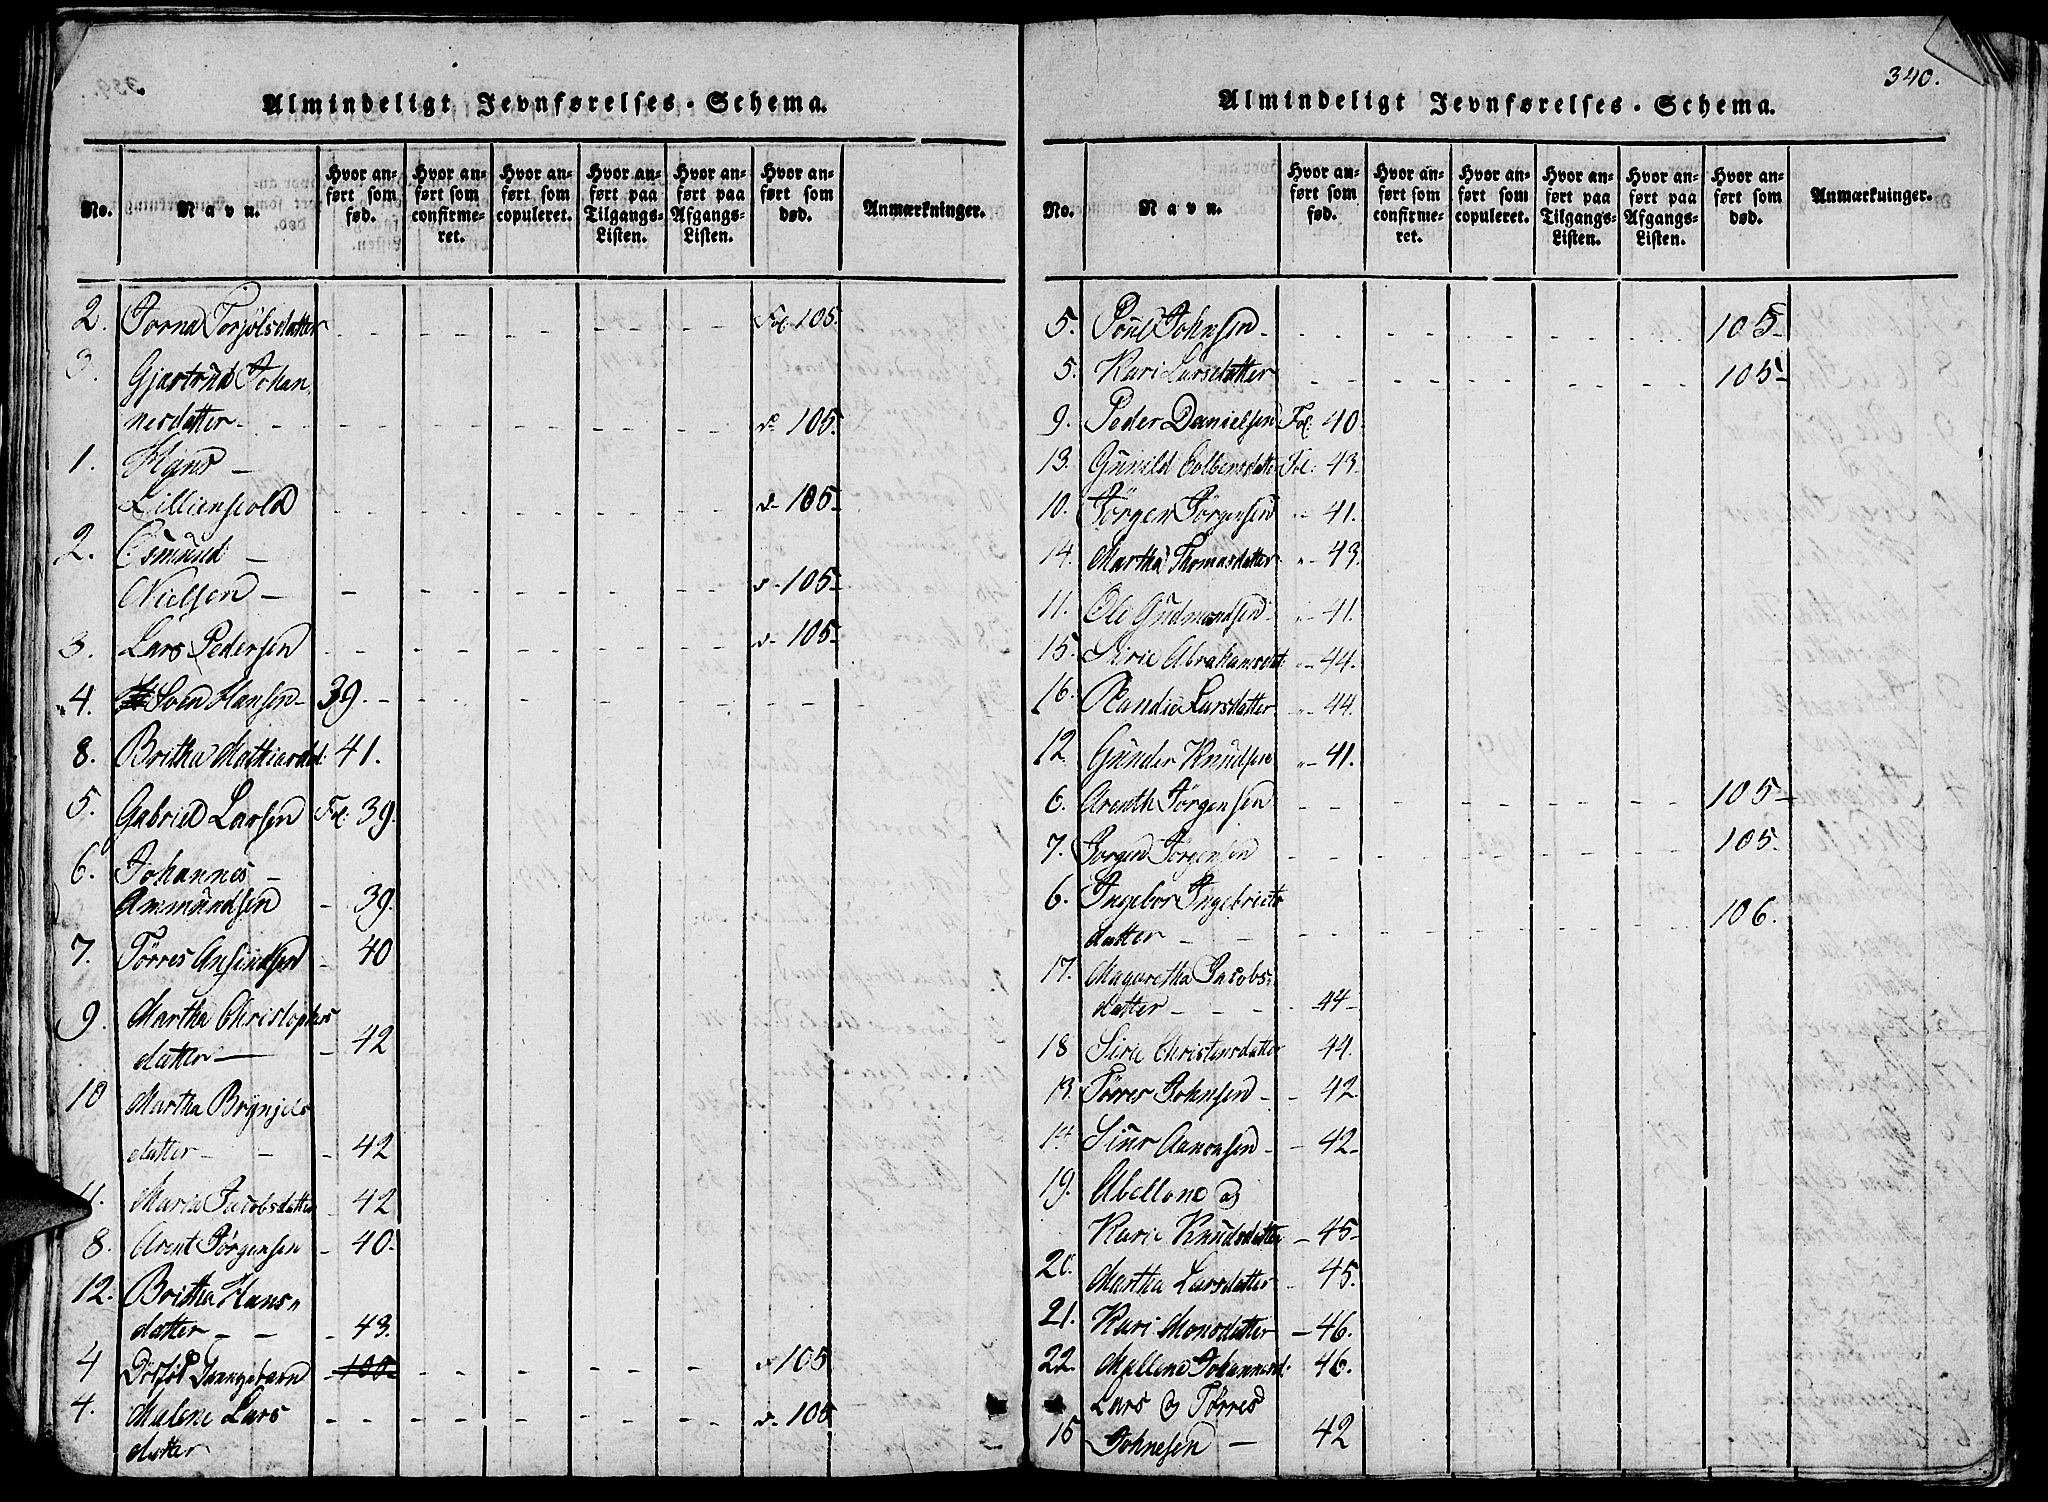 Almindeligt Jevnførelses-Schema.
No.
Navn.
Hvor anført som fød.
Hvor anført som confirmeret.
Hvor anført som copuleret.
Hvor anført paa Tilgangs-Listen.
Hvor anført paa Afgangs-Listen.
Hvor anført som død.
Anmærkninger.
2. Jorna Torjølsdatter Fol. 105.
3. Gjertrud Johan
nesdatter 105.
1. Hans
Lillienskold 105
2. Osmund
Nielsen 105
3. Lars Pedersen 105
4. Sven Hansen 39.
8. Britha Mathiasdd: 41.
5. Gabriel Larsen Fol: 39.
6. Johannes
Ammundsen 39.
7. Tørres 40
9. Martha Christophers
datter 42
10 Martha Brynjels
datter 42
11. Maria Jacobsdatter 42
8. Arent Jørgensen 40
12. Britha Hans-
datter 43.
4 105
4. Malene Lars 105
datter
340.
Almindeligt Jevnførelses-Schema.
No.
Navn.
Hvor anført som fød.
Hvor anført som confirmeret.
Hvor anført som copuleret.
Hvor anført paa Tilgangs-Listen.
Hvor anført paa Afgangs-Listen.
Hvor anført som død.
Anmærkninger.
5. Poul Johnsen 105
5. Kari Larsdatter 105
9. Peder Danielsen Fol: 40
13. Gunild Fol: 43
10. Jörgen Jörgensen 41.
14. Martha Thomasdatter 43.
11. Ole Gudmundsen 41.
15. Sirie Abrahamsdat: 44.
16. Randie Larsdatter 44.
12. Gunder Knudsen 41.
6. Arenth Jörgensen 105
7. Jorgen Jorgensen 105
6. Ingebor Ingebricts 106.
datter
17. Magaretha Jacobs-
datter 44
18 Sirie Christensdatter 44.
13. Törres Johnsen 42.
14. Aanonsen 42
19. Abellone og
Karie Knudsdatter 45
20. Martha Larsdatter 45.
21. Kari Monsdatter 46.
22. Mallene Johannesd: 46.
Lars og Tørres
15 Johnesen 42